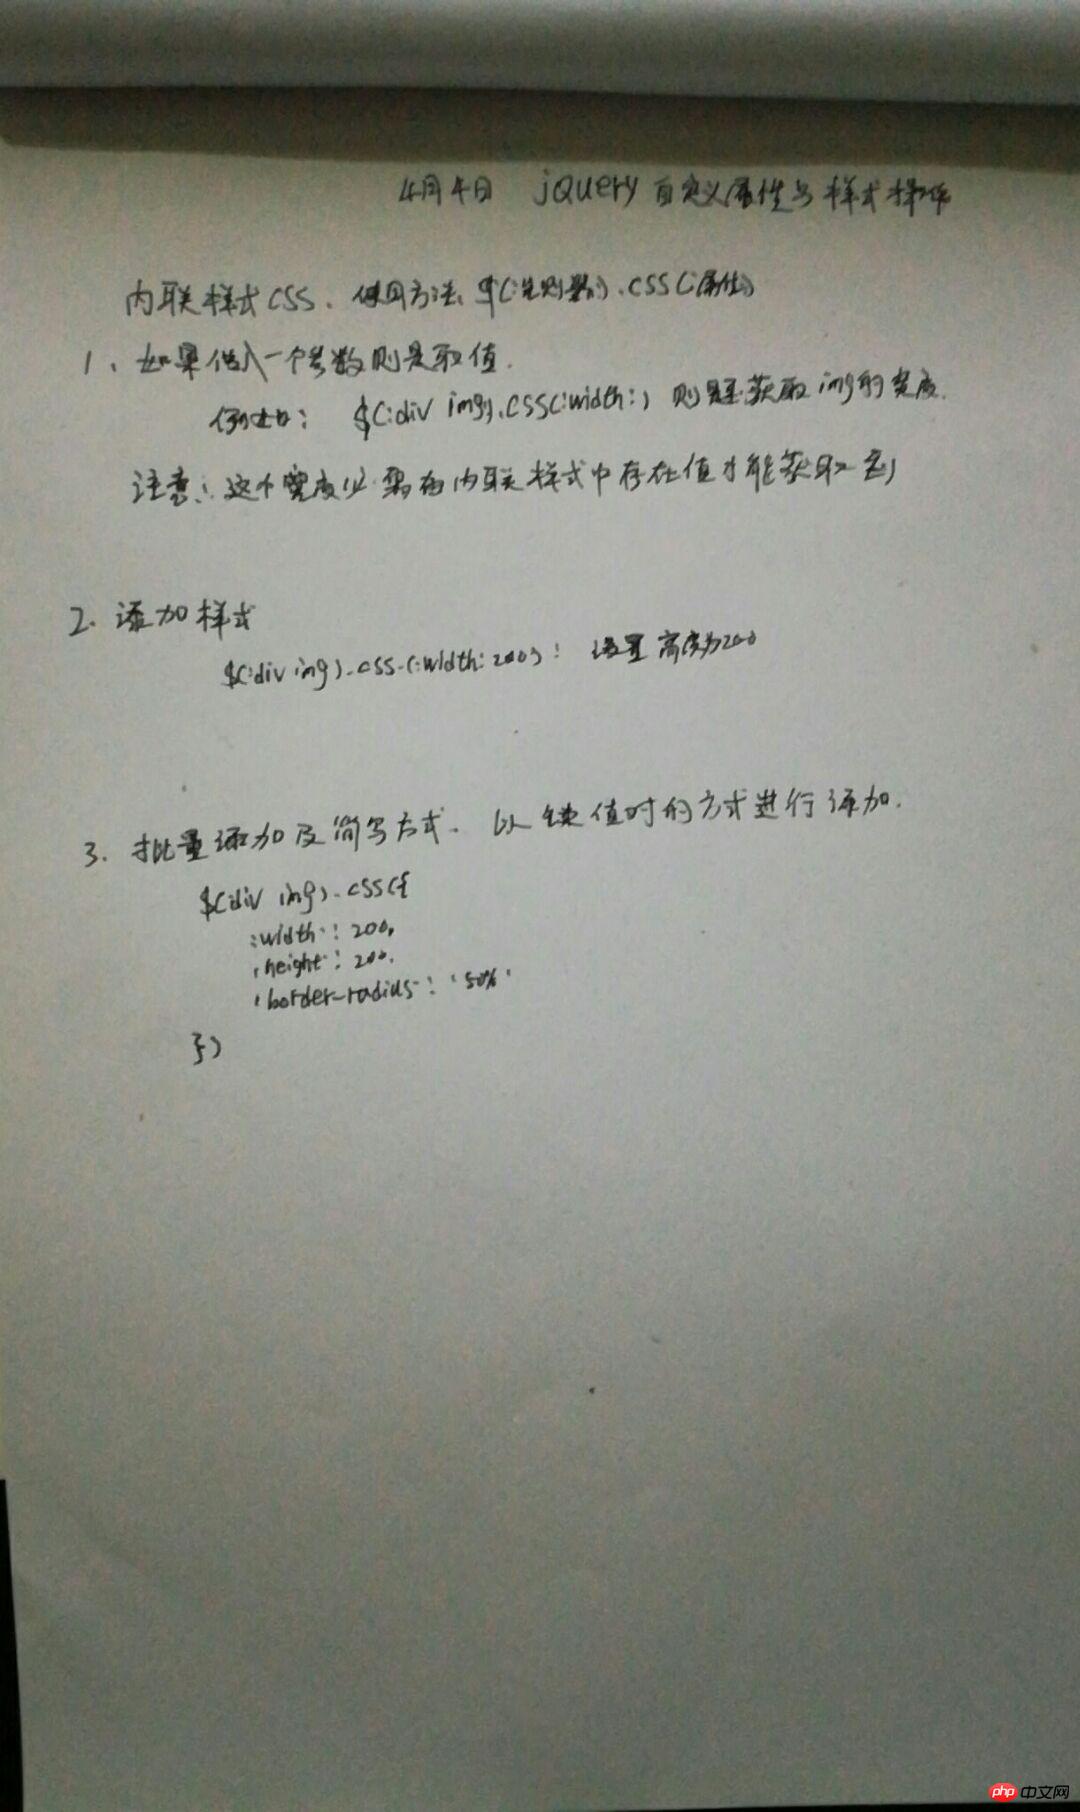 4月4日 jQuery 自定义属性与样式操作
内联样式CSS、使用方法、$('选择器').css('属性')
1、如果传入一个参数则是取值.
例如: $('div img').css('width') 则是获取img的宽度.
注意:这个宽度必需在内联样式中存在值才能获取到
2. 添加样式
$('div img').css('width',200): 设置高度为200
3. 批量添加及简写方式. 以键值对的方式进行添加.
$('div img').css({
'width': 200,
'height': 200,
'border-radius': '50%'
})
php 中文网